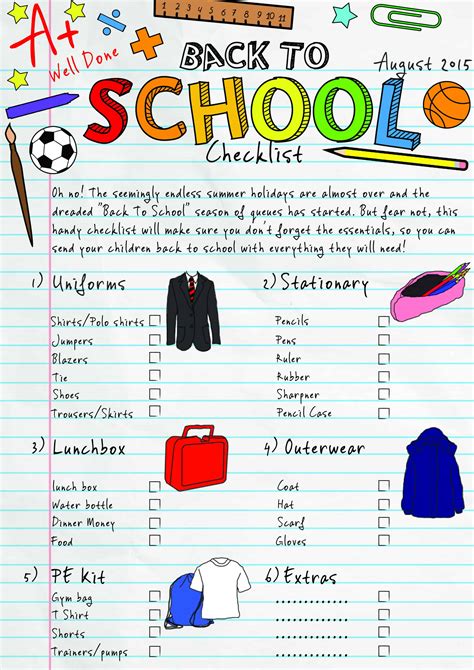 A+
Well Done
1 2 3 4 5 6 7 8 9 10 11
BACK TO
August 2015
SCHOOL
Checklist
Oh no! The seemingly endless summer holidays are almost over and the
dreaded "Back To School" season of queues has started. But fear not, this
handy checklist will make sure you don't forget the essentials, so you can
send your children back to school with everything they will need!
1) Uniforms
Shirts/Polo shirts
Jumpers
Blazers
Tie
Shoes
Trousers/Skirts
2) Stationary
Pencils
Pens
Ruler
Rubber
Sharpner
Pencil Case
3) Lunchbox
lunch box
Water bottle
Dinner Money
Food
4) Outerwear
Coat
Hat
Scarf
Gloves
5) PE Kit
Gym bag
T Shirt
Shorts
Trainers/pumps
6) Extras
............
............
............
............